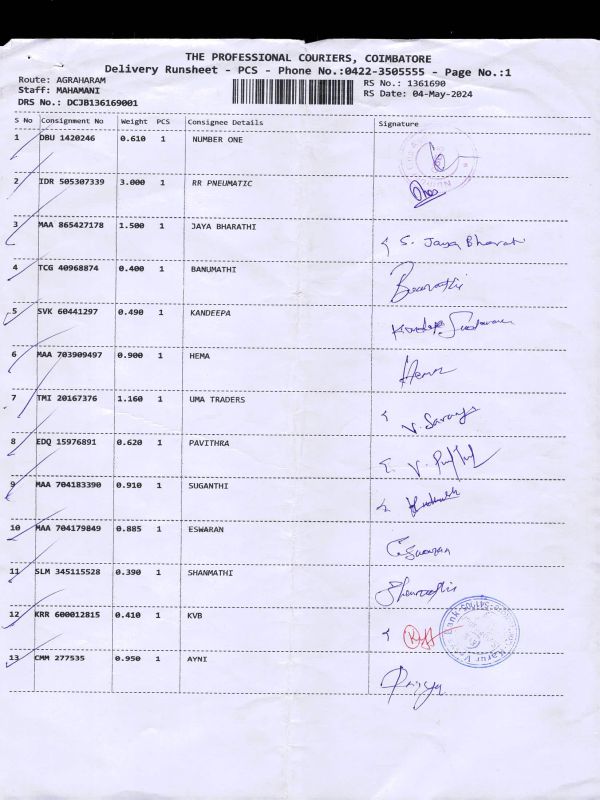 THE PROFESSIONAL COURIERS, COIMBATORE
Delivery Runsheet - PCS - Phone No.:0422-3505555 - Page No.:1
Route: AGRAHARAM
Staff: MAHAMANI
DRS No.: DCJB136169001
RS No.: 1361690
RS Date: 04-May-2024
S No Consignment No Weight PCS Consignee Details Signature
1 DBU 1420246 0.610 1 NUMBER ONE
2 IDR 505307339 3.000 1 RR PNEUMATIC
3 MAA 865427178 1.500 1 JAYA BHARATHI S. Jaya Bharati
4 TCG 40968874 0.400 1 BANUMATHI
5 SVK 60441297 0.490 1 KANDEEPA
6 MAA 703909497 0.900 1 HEMA Hema
7 TMI 20167376 1.160 1 UMA TRADERS
8 EDQ 15976891 0.620 1 PAVITHRA
9 MAA 704183390 0.910 1 SUGANTHI
10 MAA 704179849 0.885 1 ESWARAN Eswaran
11 SLM 345115528 0.390 1 SHANMATHI
12 KRR 600012815 0.410 1 KVB
13 CMM 277535 0.950 1 AYNI Priya